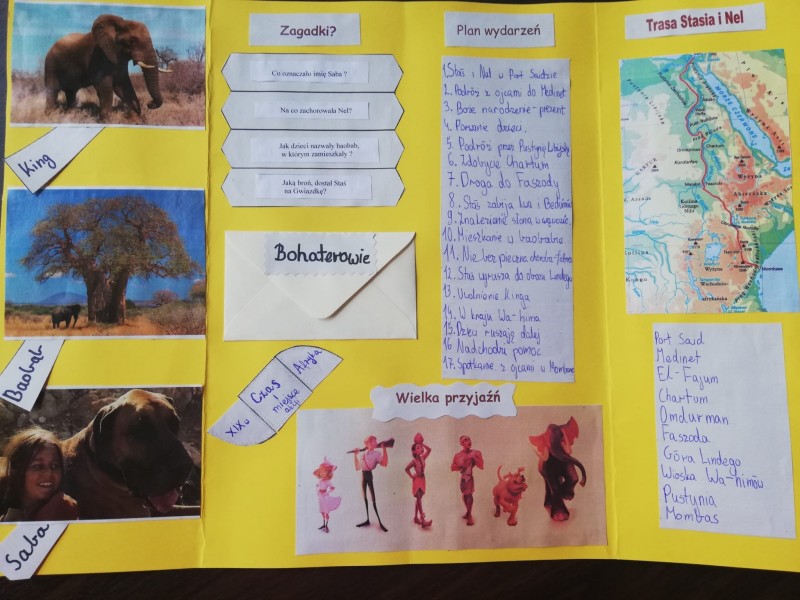 King
Baobab
Saba
Zagadki?
Co oznaczało imię Saba ?
Na co zachorowała Nel?
Jak dzieci nazwały baobab,
w którym zamieszkały ?
Jaką broń, dostał Staś
na Gwiazdkę?
Bohaterowie
XIXw
Czas
i
miejsce
akcji
Afryka
Plan wydarzeń
1. Staś i Nel w Port Saidzie
2. Podróż z ojcami do Medinet
3. Boże narodzenie - prezent
4. Porwanie dzieci.
5. Podróż przez Pustynię Libijską
6. Zdobycie Chartum
7. Droga do Faszody
8. Staś zabija lwa i Beduinów
9. Znalezienie słonia w wąwozie
10. Mieszkanie w baobabie
11. Niebezpieczna choroba - febra
12. Staś wyrusza do obozu Lindego
13. Uwolnienie Kinga
14. W kraju Wa-hima
15. Dzieci ruszają dalej
16. Nadchodzi pomoc
17. Spotkanie z ojcami w Mombasie
Wielka przyjaźń
Trasa Stasia i Nel
MORZE CZERWONE
Omdurman
Chartum
Faszoda
Wyżyna
Abisyńska
Kotlina
Górnego
Nilu
Wyżyna
Wschodnio-
afrykańska
Mombasa
Port Said
Medinet
El-Fajum
Chartum
Omdurman
Faszoda
Góra Lindego
Wioska Wa-himów
Pustynia
Mombas